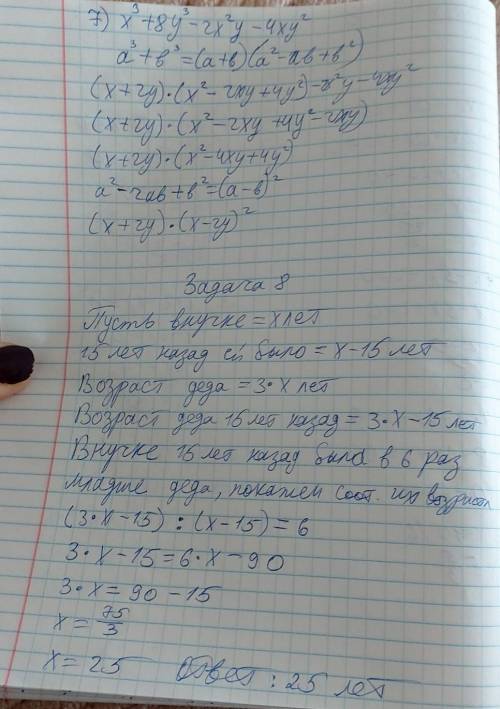 7) x³+8y³-2x²y-4xy²
a³+в³=(a+в)(a²-aв+в²)
(x+2y)·(x²-2xy+4y²)-2x²y-4xy²
(x+2y)·(x²-2xy+4y²-2xy)
(x+2y)·(x²-4xy+4y²)
a²-2aв+в²=(a-в)²
(x+2y)·(x-2y)²
Задача 8
Пусть внучке = x лет
15 лет назад ей было = x-15 лет
Возраст деда = 3·x лет
Возраст деда 15 лет назад = 3·x-15 лет
Внучке 15 лет назад была в 6 раз
младше деда, покажем соот. их возраста
(3·x-15) : (x-15) = 6
3·x-15=6·x-90
3·x=90-15
x=75/3
x=25 Ответ: 25 лет